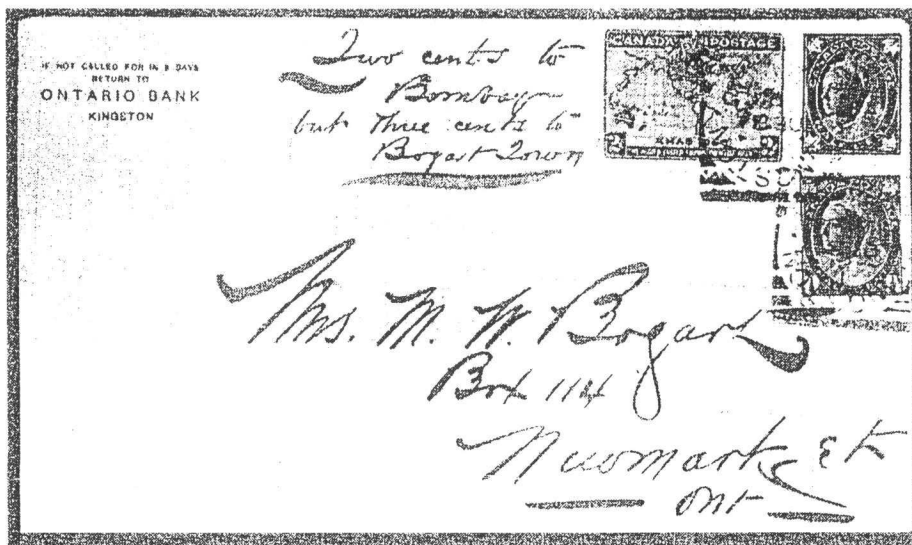 IF NOT CALLED FOR IN 5 DAYS
RETURN TO
ONTARIO BANK
KINGSTON
Two cents to
Bombay
but three cents to
Bogart Town
CANADA POSTAGE
XMAS
Mrs. M. W. Bogart
Box 114
Newmarket
Ont